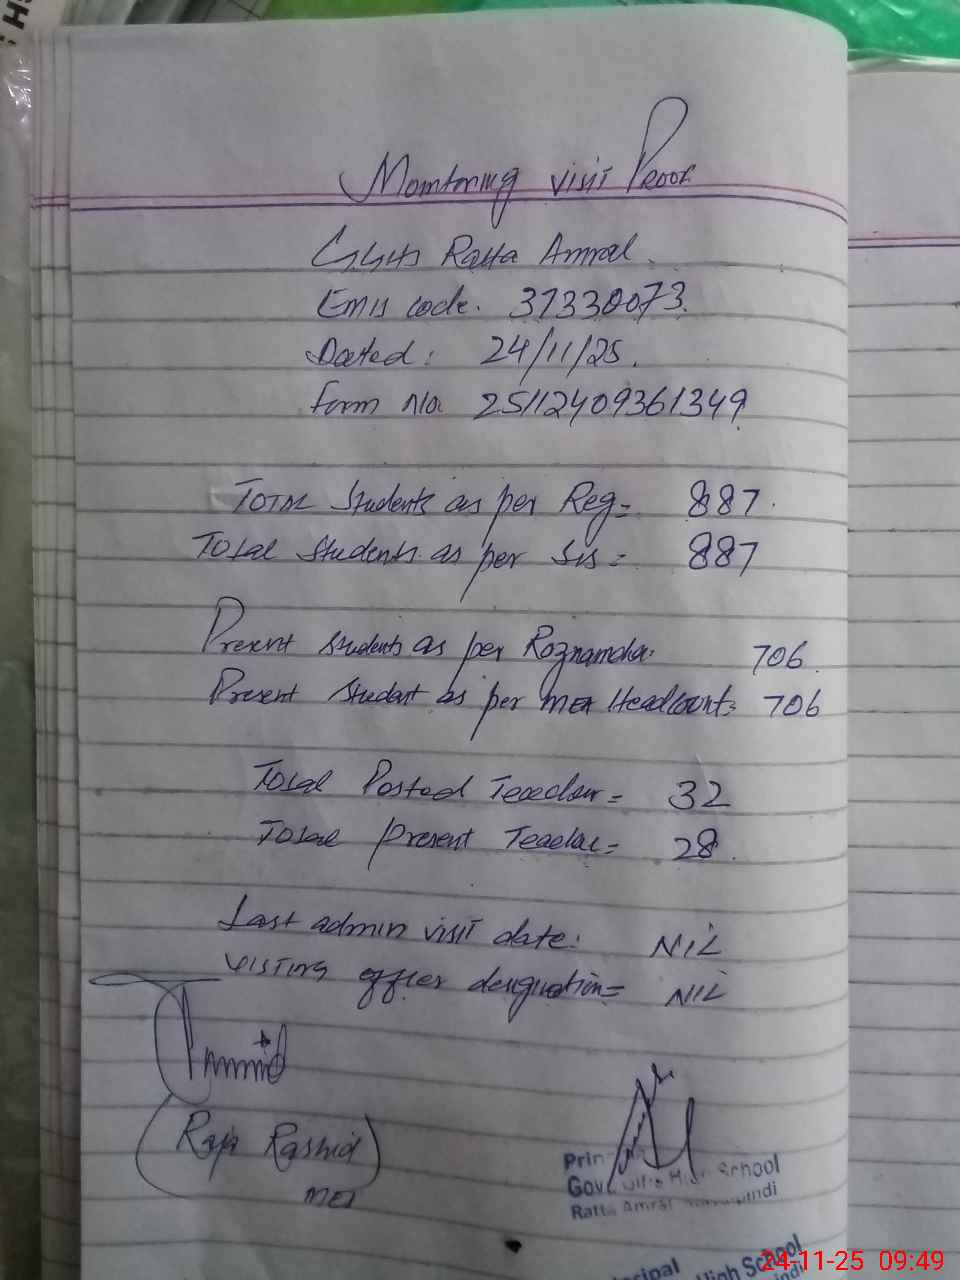 Monitoring visit Proof
GGHS Ratta Amral.
Emis code. 37330073.
Dated: 24/11/25.
Form No. 25112409361349
Total Students as per Reg = 887.
Total Students as per Sis = 887
Present Students as per Roznamcha: 706.
Present Student as per MEA Headcount: 706
Total Posted Teacher = 32
Total Present Teacher = 28.
Last admin visit date: NIL
Visiting officer designation = NIL
(Raja Rashid)
MEA
Govt Girls High School
Ratta Amral
High School
24-11-25 09:49